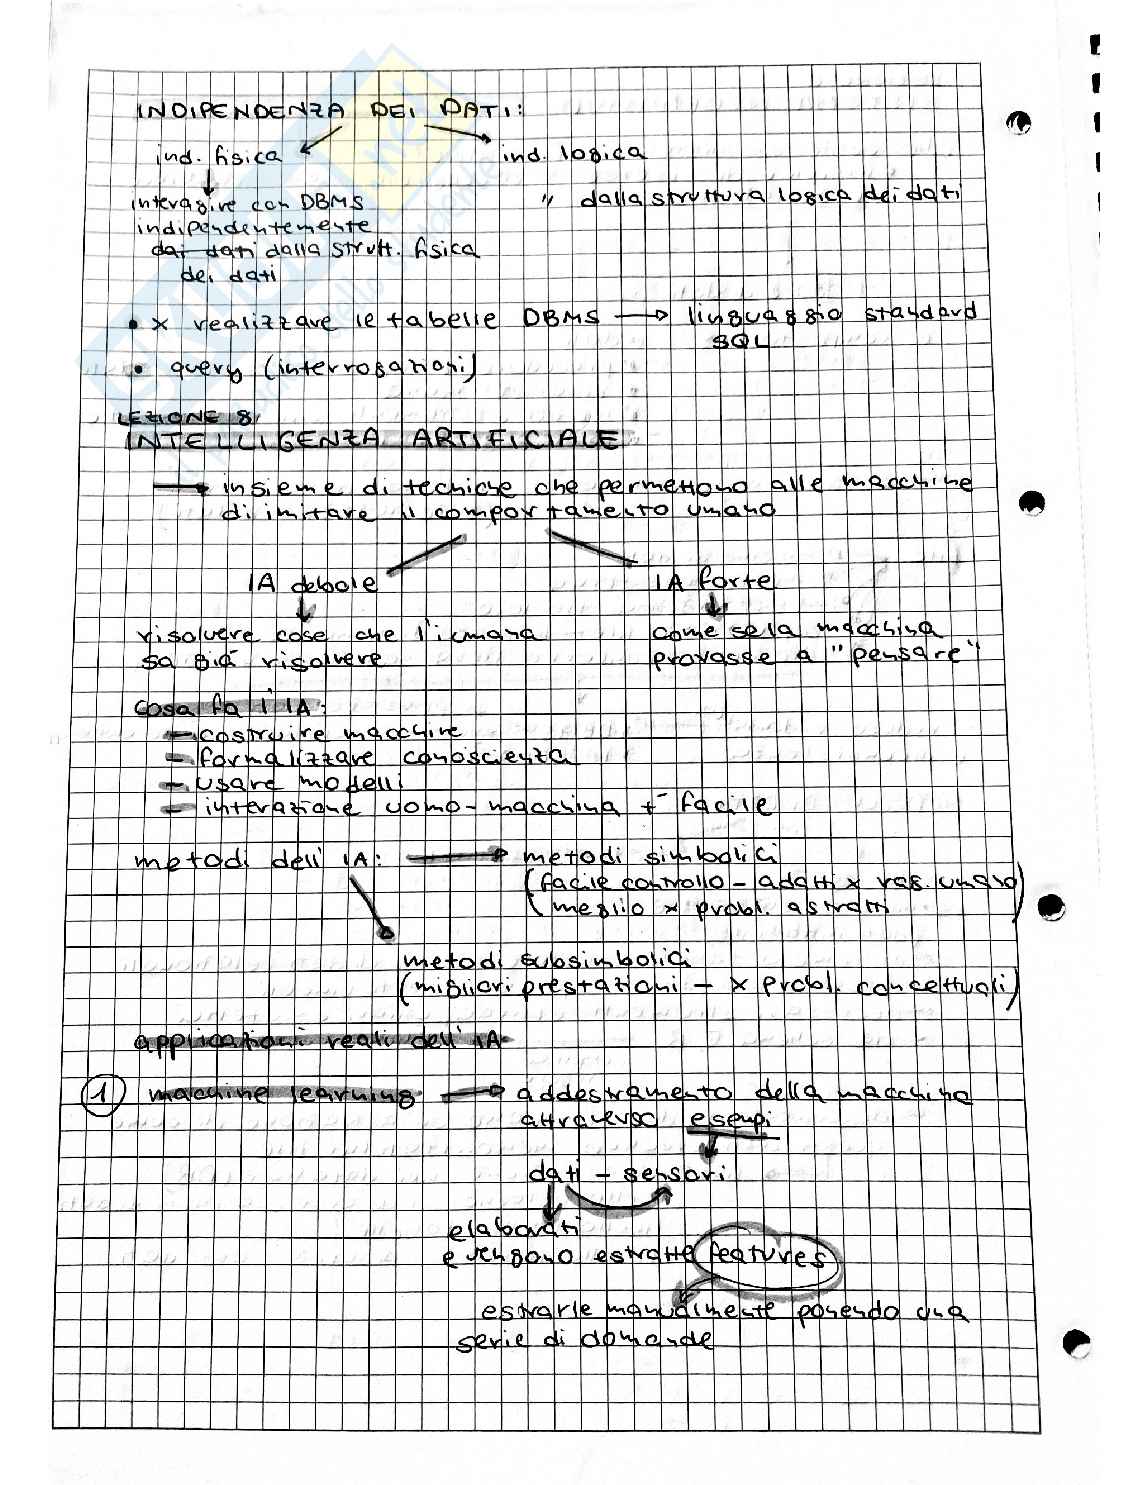 INDIPENDENZA DEI DATI:
ind. fisica
ind. logica
interagire con DBMS
" dalla struttura logica dei dati
indipendentemente
dai dati dalla strutt. fisica
dei dati
• x realizzare le tabelle DBMS → linguaggio standard
SQL
• query (interrogazioni)
LEZIONE 8
INTELLIGENZA ARTIFICIALE
→ insieme di tecniche che permettono alle macchine
di imitare il comportamento umano
IA debole
IA forte
risolvere cose che l'
come se la macchina
sa già risolvere
provasse a "pensare"
cosa fa l'IA:
- costruire macchine
- formalizzare conoscienza
- usare modelli
- interazione uomo-macchina + facile
metodi dell'IA: → metodi simbolici
(facile controllo - adatti x rag. umano)
(meglio x probl. astratti)
metodi subsimbolici
(migliori prestazioni - x probl. concettuali)
applicazioni reali dell'IA
1 machine learning → addestramento della macchina
attraverso esempi
dati - sensori
elaborati
e vengono estratte features
estrarle manualmente ponendo una
serie di domande